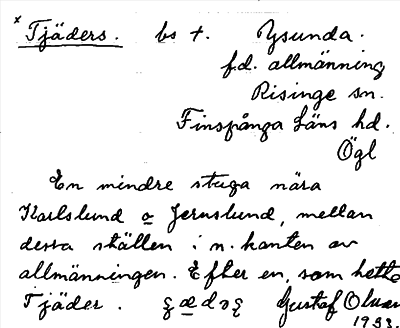 x Tjäders. bs t. Ysunda.
f.d. allmänning
Risinge sn.
Finspånga Läns hd.
Ögl
En mindre stuga nära
Karlslund o Jernslund, mellan
dessa ställen i n. kanten av
allmänningen. Efter en, som hette
Tjäder. Gustaf
1933.